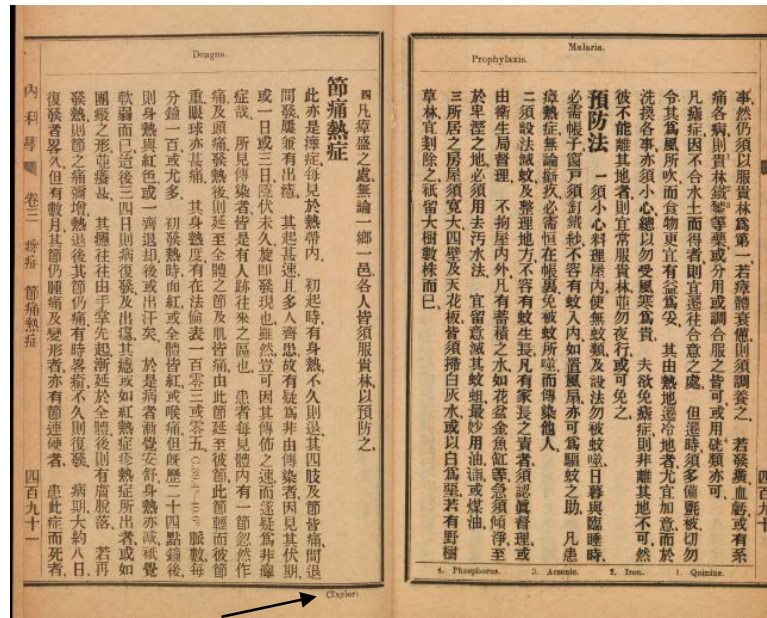 Malaria.
Prophylaxis.
事然仍須以服貴林爲第一若瘧體衰憊則須調養之、若發黃血虧或有系
痛各病則貴林鐵等藥或分用或調合服之皆可或用類亦可、
凡瘧症因不合水土而得者則宜遷往合意之處、但遷時須多備氈被切勿
令其爲風所吹而食物更宜有益爲妥、其由熱地遷冷地者尤宜加意而於
洗換各事亦須小心總以勿受風寒爲貴、夫欲免瘧症則非離其地不可然
彼不能離其地者則宜常服貴林並勿夜行或可免之、
預防法 一須小心料理屋內使無蚊類及設法勿被蚊噬日暮與臨睡時、
必需帳子窗戶須釘鐵紗不容有蚊入內如置風扇亦可爲驅蚊之助、凡患
瘴熱症無論必需恒在帳裏免被蚊所噬而傳染他人、
二須設法滅蚊及整理地方不容有蚊生長凡有家長之責者須認眞督理或
由衛生局督理、不拘屋內外凡有蓄積之水如花盆金魚缸等急須傾淨至
於卑溼之地必須用去污水法、宜留意滅其蚊蛆最妙用油脂或煤油、
三所居之房屋須寬大四壁及天花板皆須掃白灰水或以白爲堊若有野樹
草林宜剗除之祗留大樹數株而已、
四百九十
4. Phosphorus. 3. Arsenic. 2. Iron. 1. Quinine.
Dengue.
四凡瘴盛之處無論一鄉一邑各人皆須服貴林以預防之、
節痛熱症
此亦是瘴症每見於熱帶內、初起時有身熱不久則退其四肢及節皆痛間退
間發屢兼有出疹、其起甚速且多人齊患故有疑爲非由傳染者因見其伏期
或一日或三日隱伏未久旋即發現也雖然豈可因其傳佈之速而遂疑爲非瘴
症哉、所見傳染者皆是有人跡往來之區也、患者每見體內有一節忽然作
痛及頭痛發熱後則延至全體之節及肌皆痛由此節延至彼節此節輕而彼節
重眼球亦甚痛、其身熱度有在法倫表一百零三或零五、脈數每
分鐘一百或尤多、初發熱時面紅或全體皆紅或喉痛但旣歷二十四點鐘後、
則身熱與紅色或一齊退却後或出汗矣、於是病者漸覺安舒身熱亦減祗覺
軟弱而已迨後三四日則病復發及出疹其疹或如紅熱症疹熱症所出者或如
團癍之形並癢甚、其疹往往由手掌先起漸延於全體後則有膚脫落、若再
發熱則節之痛彌增熱退後其節仍痛有時畧瘉不久則復發、病期大約八日、
復發者畧久但有數月其節仍腫痛及變形者亦有節遂硬者、患此症而死者、
內科學 卷三 瘴症 節痛熱症 四百九十一
(Taylor)